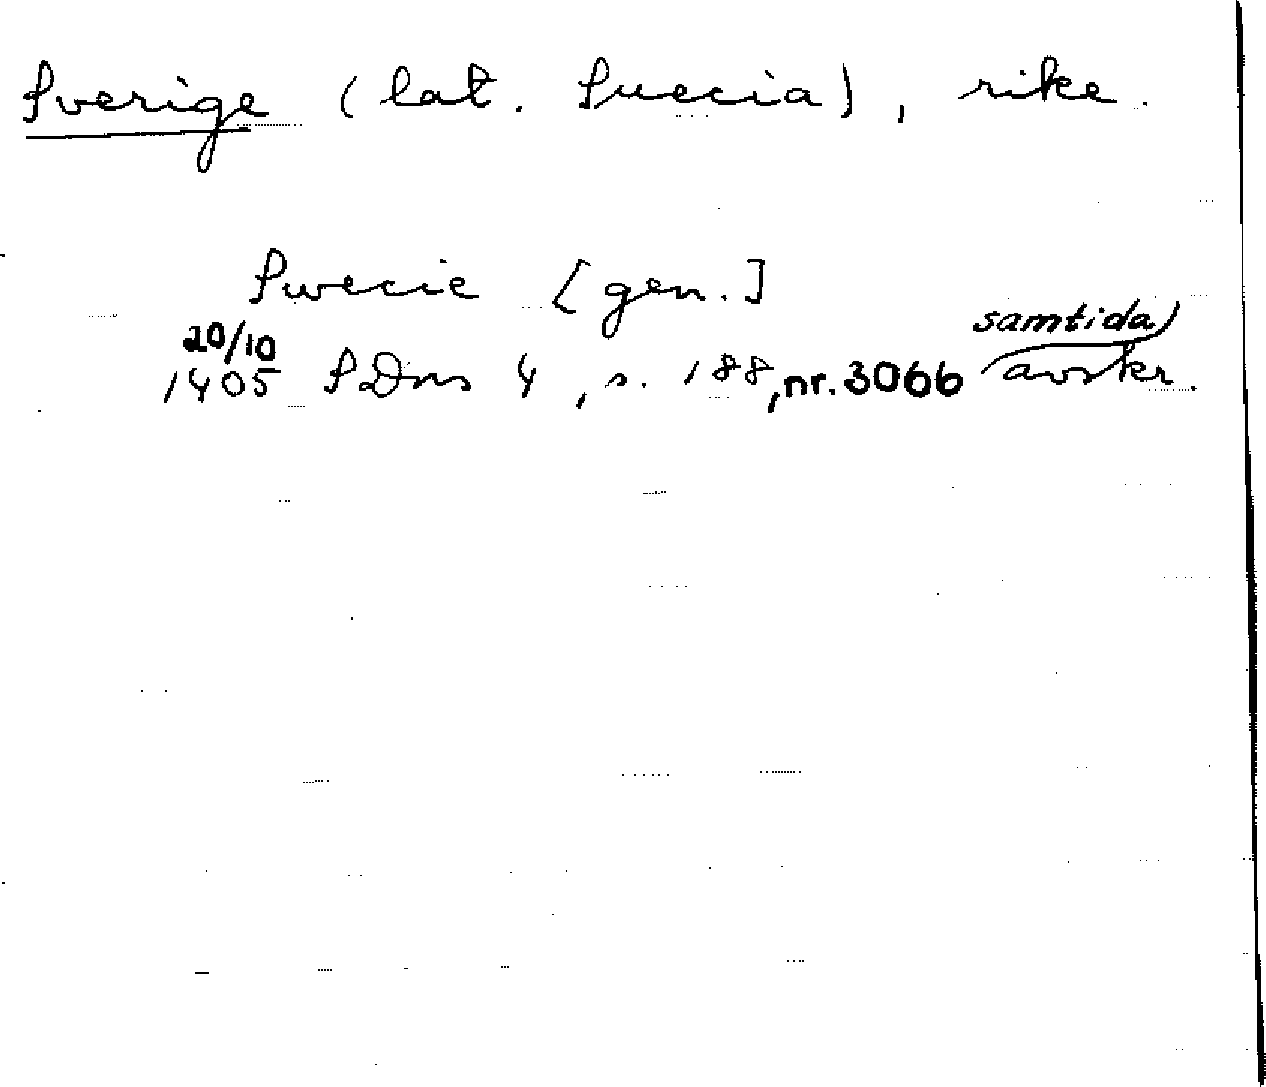 Sverige (lat. Suecia), rike.
Swecie [gen.]
20/10
1405 SDns 4, s. 188, nr. 3066 samtida avskr.